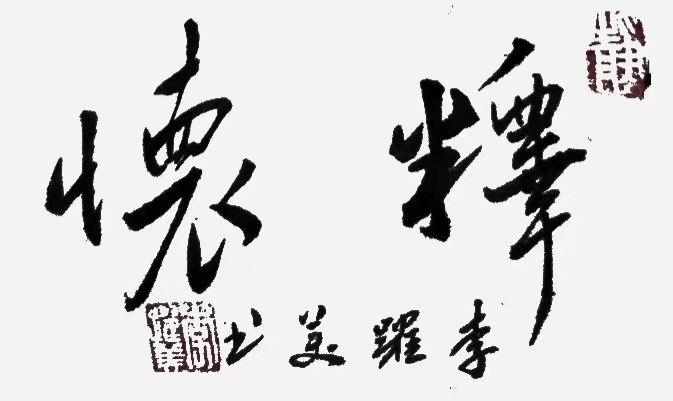 釋懷
李躍美书